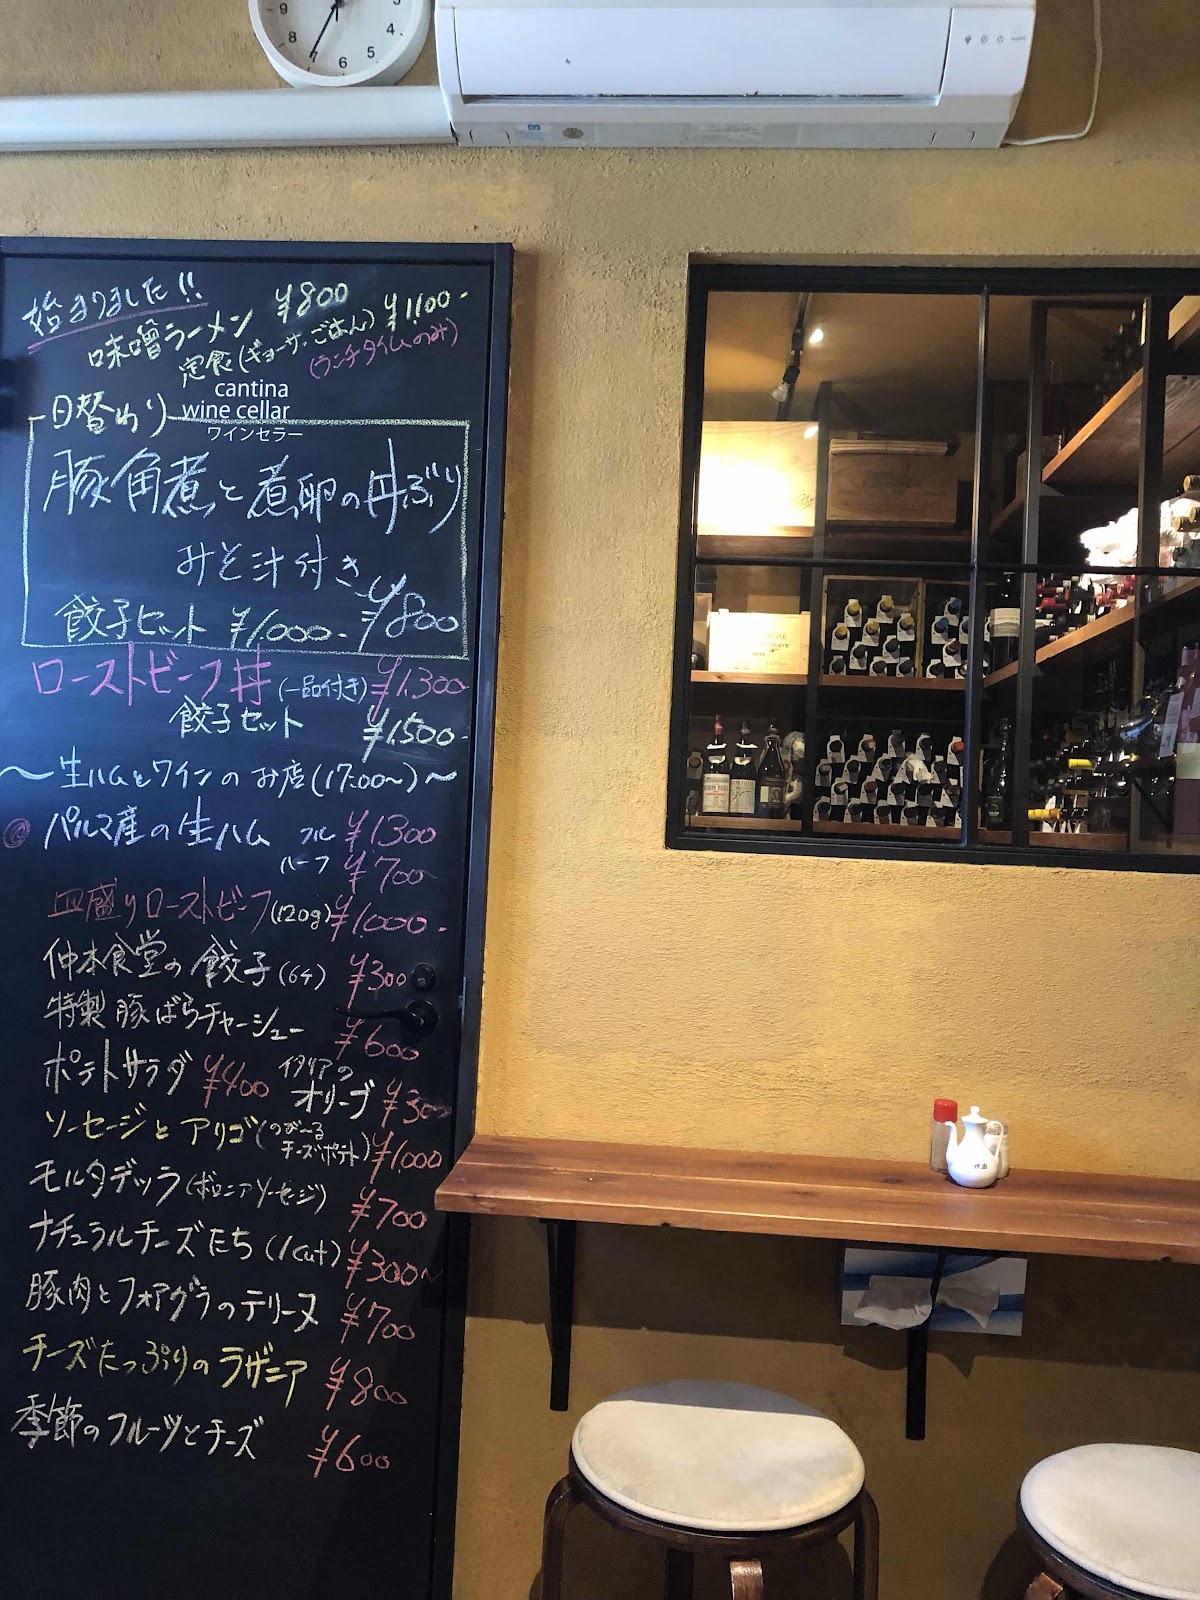 9
8
7
6
5
4
始まりました!!
味噌ラーメン ¥800
定食(ギョーサ・ごはん) ¥1,100-
(ランチタイムのみ)
cantina
wine cellar
ワインセラー
日替わり
豚角煮と煮卵の丼ぶり
みそ汁付き ¥800
餃子セット ¥1,000-
ローストビーフ丼(一品付き) ¥1,300-
餃子セット ¥1,500-
〜生ハムとワインのお店(17:00〜)〜
パルマ産の生ハム フル ¥1300
ハーフ ¥700
皿盛りローストビーフ(120g) ¥1,000-
仲本食堂の餃子(6ヶ) ¥300
特製豚ばらチャーシュー ¥600
ポテトサラダ ¥400 イタリアの
オリーブ ¥300
ソーセージとアリゴ(のび〜る
チーズポテト) ¥1000
モルタデッラ(ボロニアソーセージ) ¥700
ナチュラルチーズたち(1cut) ¥300〜
豚肉とフォアグラのテリーヌ ¥700
チーズたっぷりのラザニア ¥800
季節のフルーツとチーズ ¥600